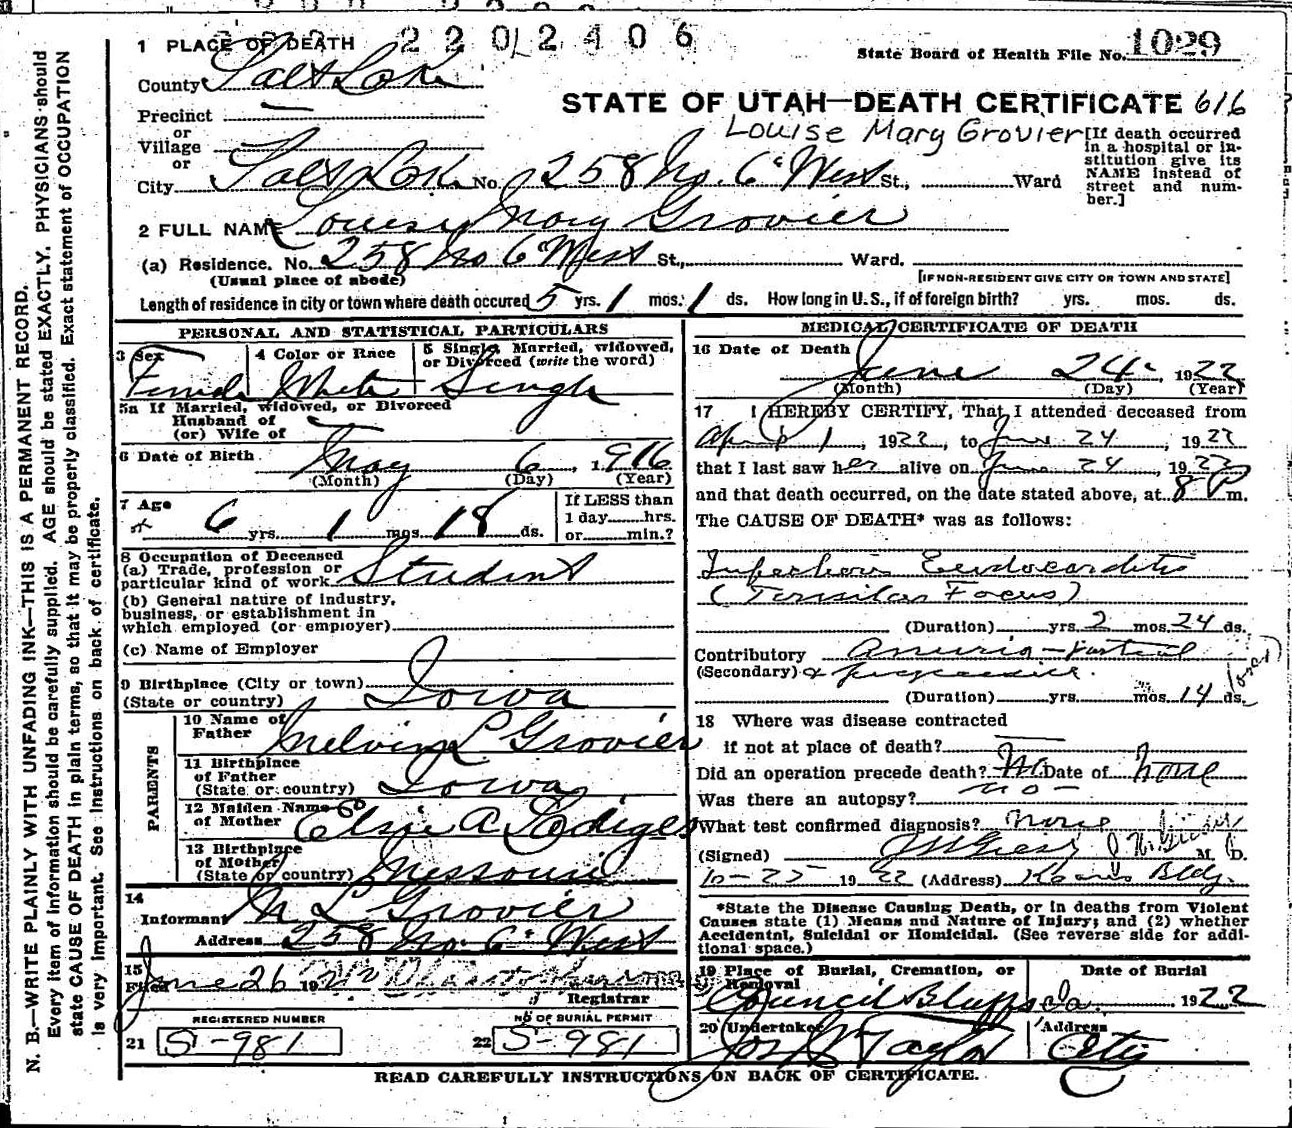 2202406
1 PLACE OF DEATH
State Board of Health File No. 1029
County Salt Lake
STATE OF UTAH—DEATH CERTIFICATE 616
Precinct
or
Village
or
Louise Mary Grovier
[If death occurred
in a hospital or in-
stitution give its
NAME instead of
street and num-
ber.]
City Salt Lake No. 258 No. 6th West St., Ward
2 FULL NAME Louise Mary Grovier
(a) Residence. No. 258 No 6th West St., Ward.
(Usual place of abode)
[IF NON-RESIDENT GIVE CITY OR TOWN AND STATE]
Length of residence in city or town where death occured 5 yrs. 1 mos. 1 ds. How long in U. S., if of foreign birth? yrs. mos. ds.
PERSONAL AND STATISTICAL PARTICULARS
3 Sex
Female
4 Color or Race
White
5 Single, Married, widowed,
or Divorced (write the word)
Single
5a If Married, widowed, or Divorced
Husband of
(or) Wife of
6 Date of Birth May 6, 1916
(Month) (Day) (Year)
7 Age
6 yrs. 1 mos. 18 ds.
If LESS than
1 day......hrs.
or......min.?
8 Occupation of Deceased
(a) Trade, profession or
particular kind of work Student
(b) General nature of industry,
business, or establishment in
which employed (or employer)
(c) Name of Employer
9 Birthplace (City or town)
(State or country) Iowa
PARENTS
10 Name of
Father Melvin L Grovier
11 Birthplace
of Father
(State or country) Iowa
12 Maiden Name
of Mother Elsie A Lodiges
13 Birthplace
of Mother
(State or country) Missouri
14
Informant M L Grovier
Address 258 No. 6th West
15
Filed June 26 19
Registrar
REGISTERED NUMBER
21 S-981
NO OF BURIAL PERMIT
22 S-981
MEDICAL CERTIFICATE OF DEATH
16 Date of Death
June 24, 1922
(Month) (Day) (Year)
17 I HEREBY CERTIFY, That I attended deceased from
April 1, 1922, to June 24, 1922
that I last saw her alive on June 24, 1922
and that death occurred, on the date stated above, at 8 P m.
The CAUSE OF DEATH* was as follows:
Infectious Endocarditis
(Tonsilar Focus)
(Duration) yrs. 2 mos. 24 ds.
Contributory Anuria—partial
(Secondary) & progressive.
(Duration) yrs. mos. 14 ds.
18 Where was disease contracted
if not at place of death?
Did an operation precede death? No Date of none
Was there an autopsy? no
What test confirmed diagnosis? none
(Signed) M. D.
10-25 1922 (Address) Kearns Bldg.
*State the Disease Causing Death, or in deaths from Violent
Causes state (1) Means and Nature of Injury; and (2) whether
Accidental, Suicidal or Homicidal. (See reverse side for addi-
tional space.)
19 Place of Burial, Cremation, or
Removal
Council Bluffs Ia.
Date of Burial
1922
20 Undertaker
Jos Taylor
Address
City
READ CAREFULLY INSTRUCTIONS ON BACK OF CERTIFICATE.
N. B.—WRITE PLAINLY WITH UNFADING INK—THIS IS A PERMANENT RECORD.
Every item of information should be carefully supplied. AGE should be stated EXACTLY. PHYSICIANS should
state CAUSE OF DEATH in plain terms, so that it may be properly classified. Exact statement of OCCUPATION
is very important. See instructions on back of certificate.